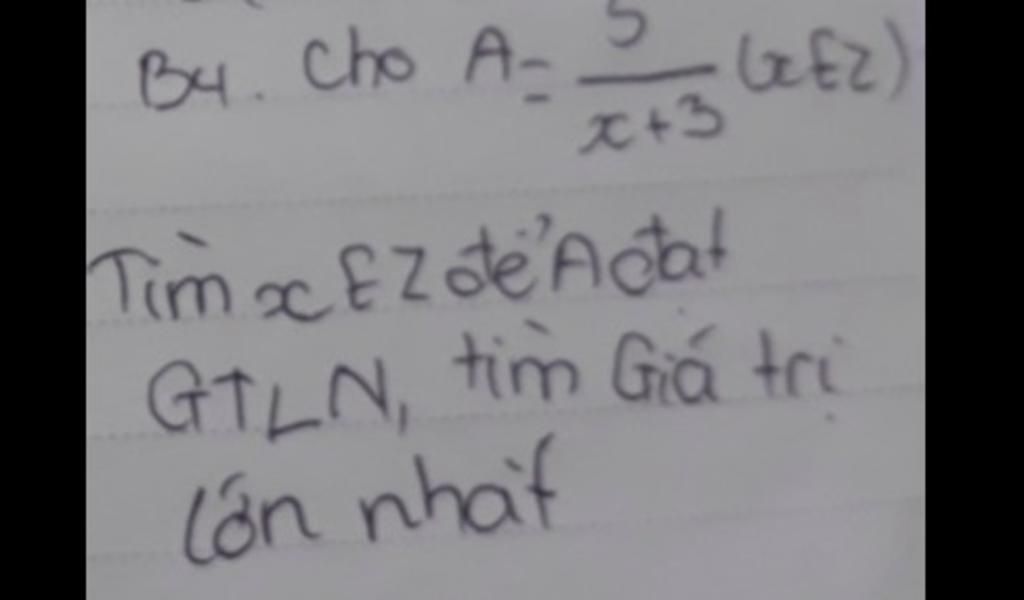 B4. Cho A = 5/(x+3) (x∈Z)
Tìm x∈Z để A đạt
GTLN, tìm Giá trị
lớn nhất